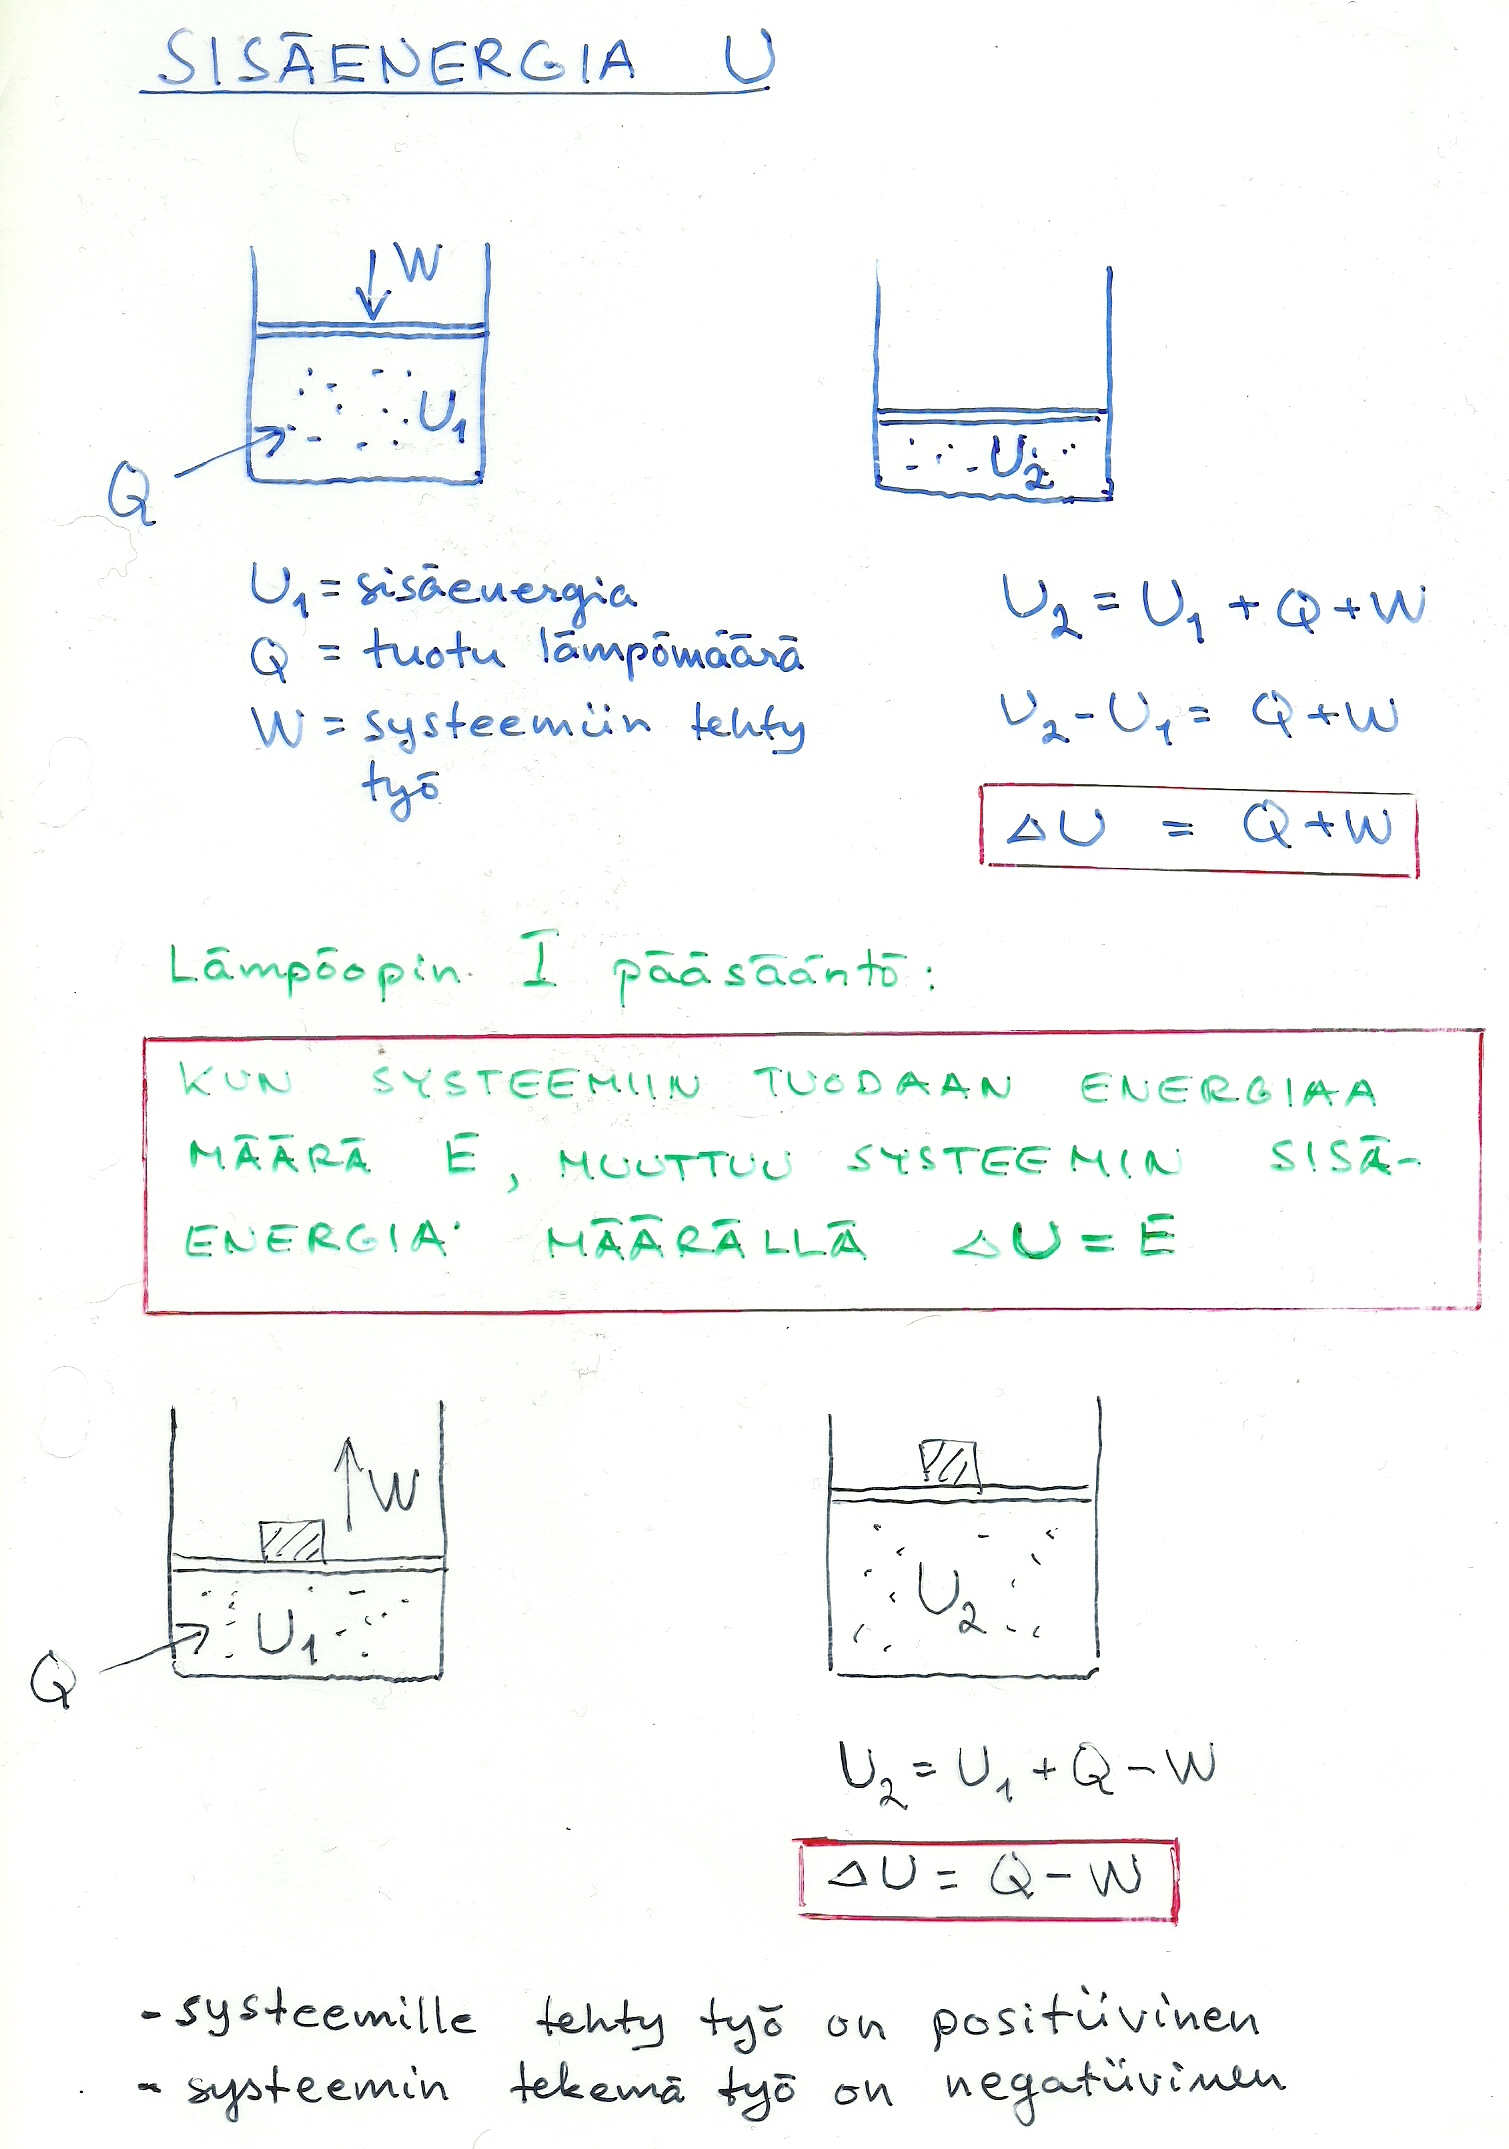 SISÄENERGIA U
W
U₁
Q
U₂
U₁ = sisäenergia
Q = tuotu lämpömäärä
W = systeemiin tehty
työ
U₂ = U₁ + Q + W
U₂ - U₁ = Q + W
ΔU = Q + W
Lämpöopin I pääsääntö:
KUN SYSTEEMIIN TUODAAN ENERGIAA
MÄÄRÄ E, MUUTTUU SYSTEEMIN SISÄ-
ENERGIA MÄÄRÄLLÄ ΔU = E
W
U₁
Q
U₂
U₂ = U₁ + Q - W
ΔU = Q - W
- systeemille tehty työ on positiivinen
- systeemin tekemä työ on negatiivinen